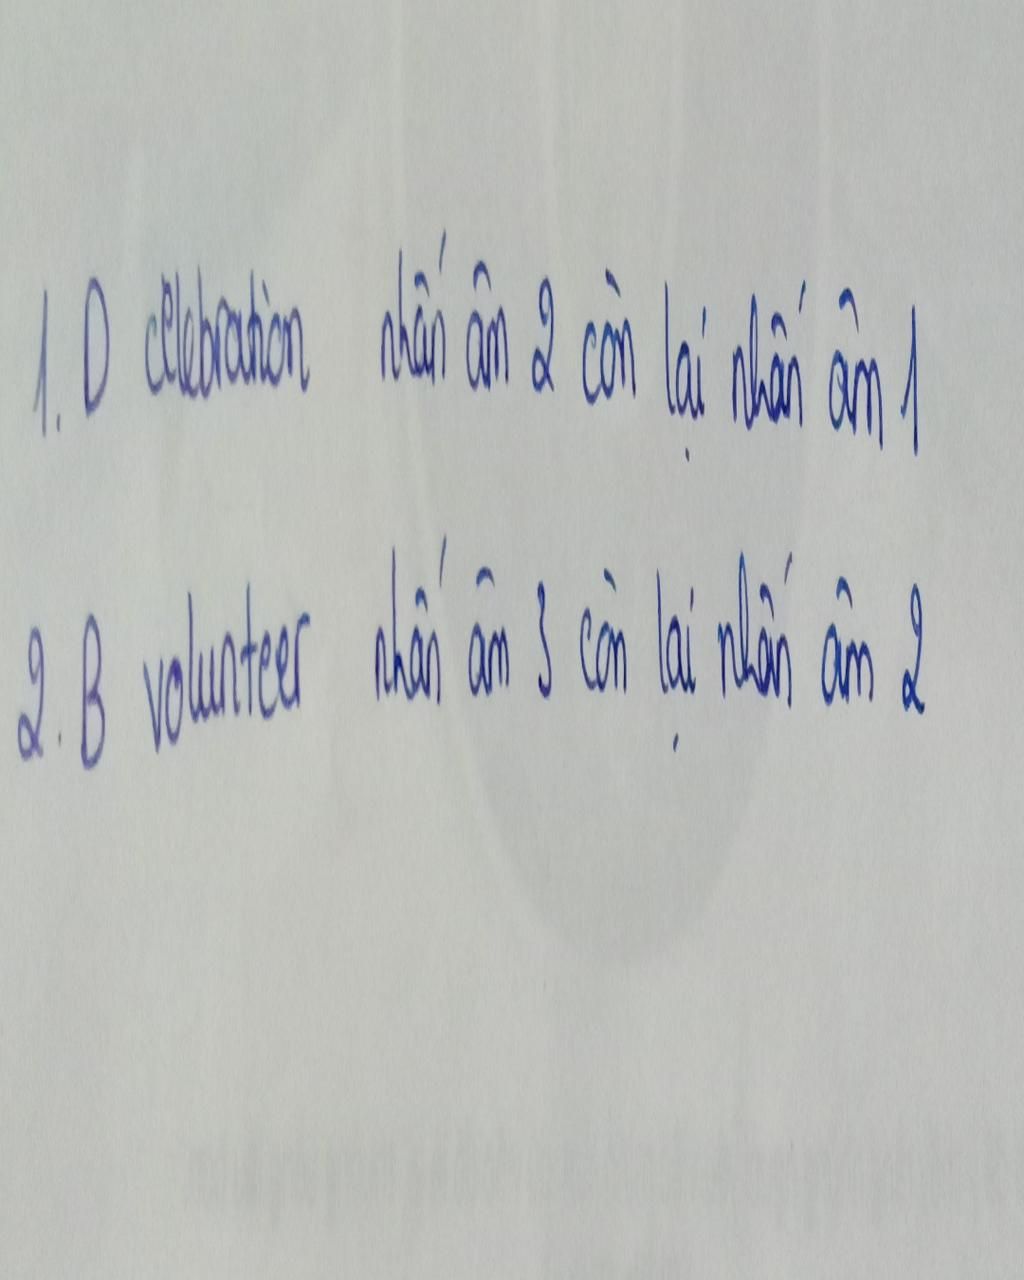 1. D celebration nhấn âm 2 còn lại nhấn âm 1
2. B volunteer nhấn âm 3 còn lại nhấn âm 2